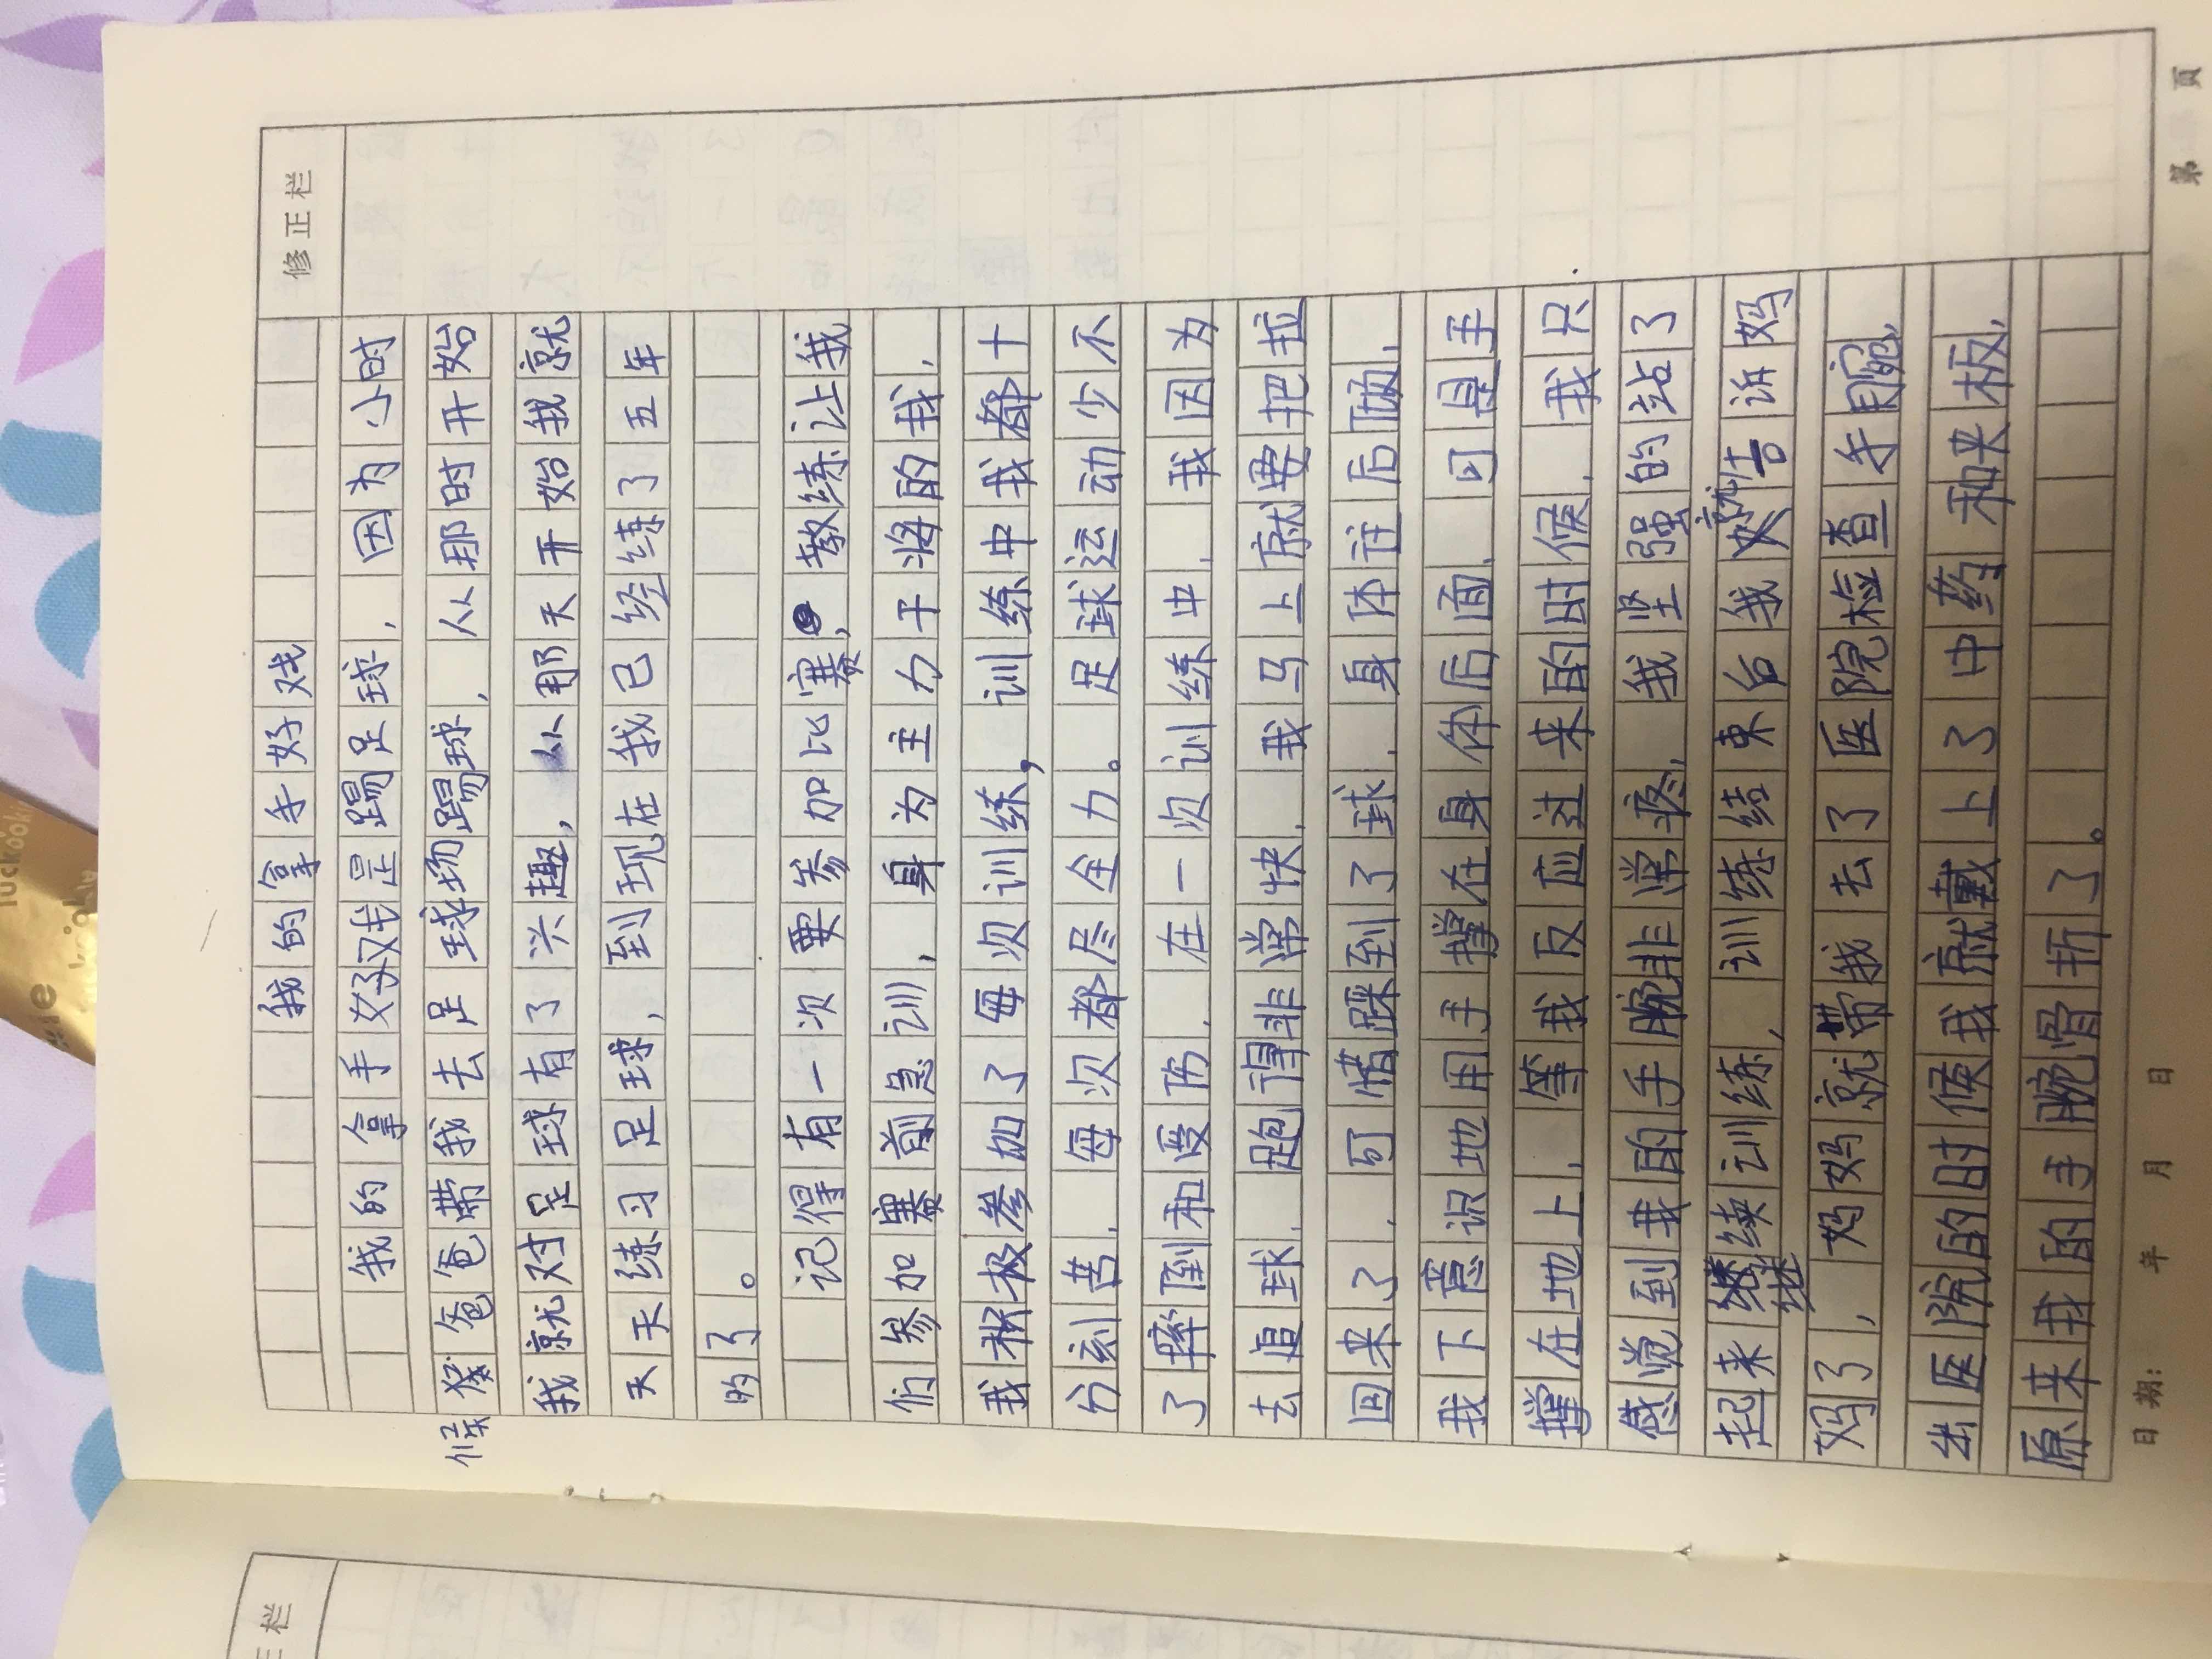 修正栏
我的拿手好戏
我的拿手好戏是踢足球，因为小时
候爸爸带我去足球场踢球，从那时开始
我就对足球有了兴趣，从那天开始我就
天天练习足球，到现在我已经练了五年
的了。
记得有一次要参加比赛，教练让我
们参加赛前急训，身为主力干将的我，
我积极参加了每次训练，训练中我都十
分刻苦，每次都尽全力。足球运动少不
了摔倒和受伤，在一次训练中，我因为
去追球，跑得非常快，我马上就要把拉
回来了，可惜踩到了球，身体往后倾，
我下意识地用手撑在身体后面，可是手
撑在地上，等我反应过来的时候，我只
感觉到我的手腕非常疼，我坚强的站了
起来继续训练，训练结束后我就告诉妈
妈了，妈妈就带我去了医院检查手腕，
出医院的时候我就戴上了中药和夹板，
原来我的手腕骨折了。
日期： 年 月 日
第 页
栏
luckook